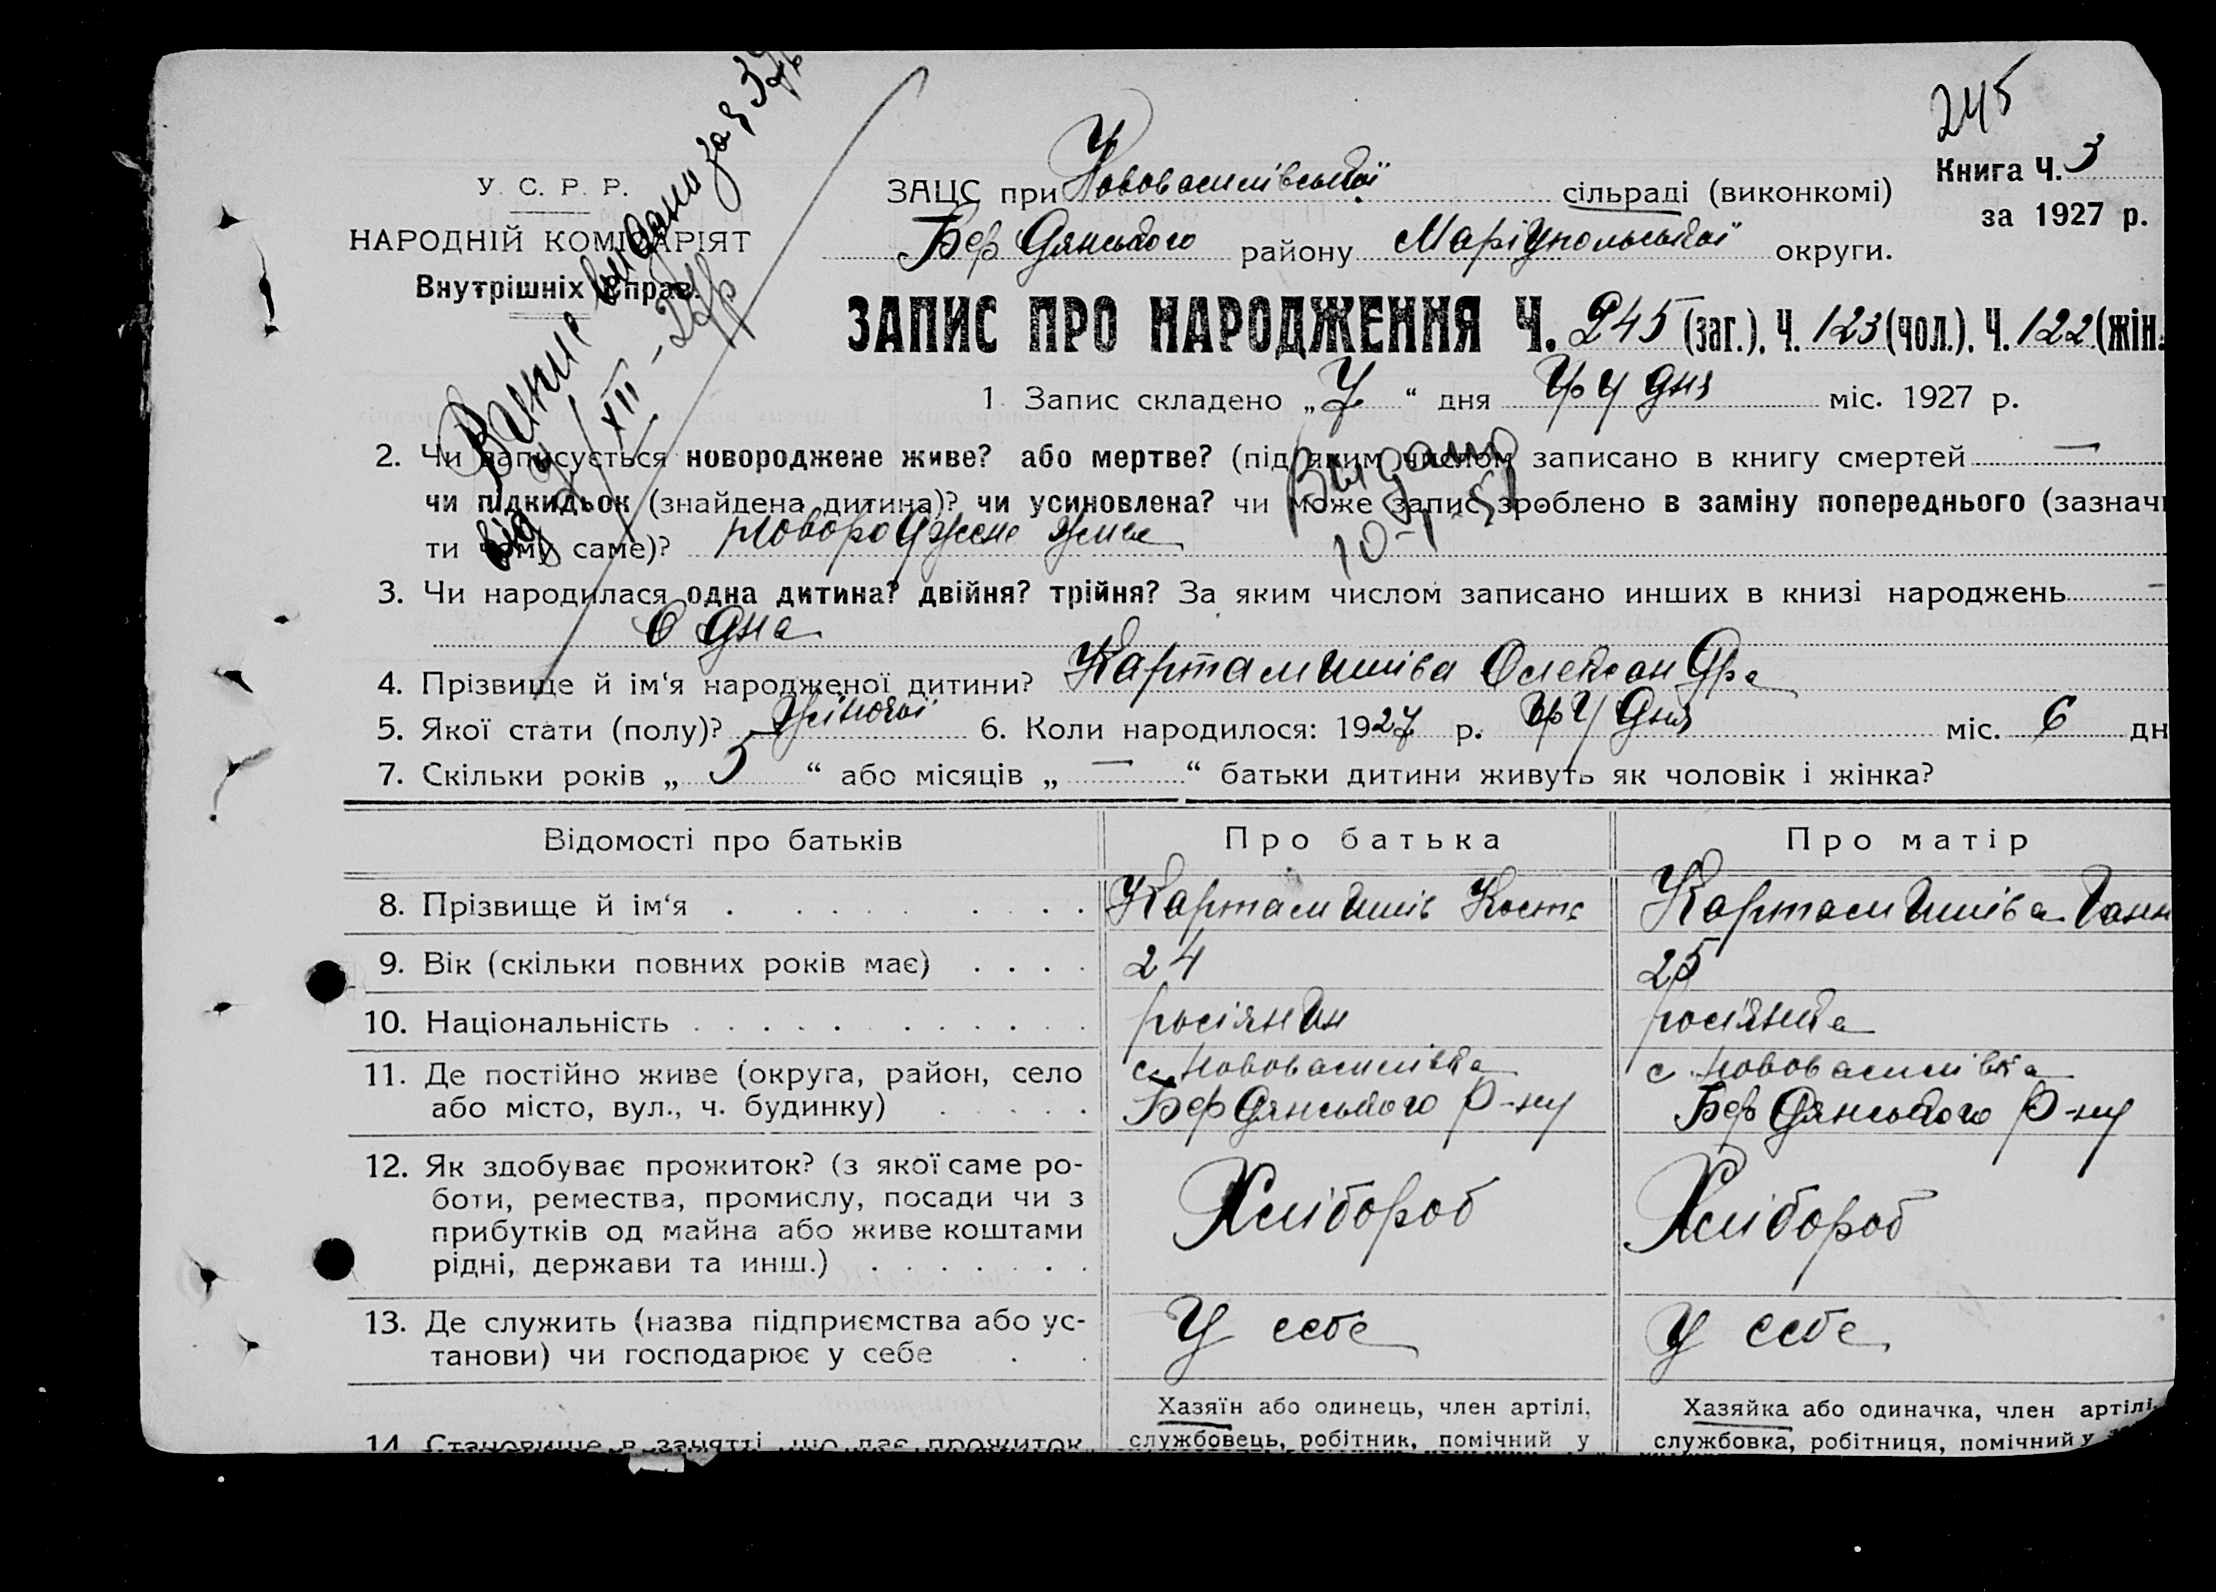 245
У. С. Р. Р.
НАРОДНІЙ КОМІСАРІЯТ
Внутрішніх Справ.
Книга Ч. 3
за 1927 р.
ЗАЦС при Нововасилівської сільраді (виконкомі)
Бердянського району Маріупольської округи.
ЗАПИС ПРО НАРОДЖЕННЯ Ч. 245 (заг.), Ч. 123 (чол.), Ч. 122 (жін.
1 Запис складено „7“ дня грудня міс. 1927 р.
2. Чи записується новороджене живе? або мертве? (під яким числом записано в книгу смертей —
чи підкидьок (знайдена дитина)? чи усиновлена? чи може запис зроблено в заміну попереднього (зазначи
ти чому саме)? новороджене живе
Видано
3. Чи народилася одна дитина? двійня? трійня? За яким числом записано инших в книзі народжень —
Одна
4. Прізвище й ім‘я народженої дитини? Картамишіва Олександра
5. Якої стати (полу)? жіночої 6. Коли народилося: 1927 р. грудня міс. 6 дн
7. Скільки років „ 5 “ або місяців „ — “ батьки дитини живуть як чоловік і жінка?
Відомості про батьків Про батька Про матір
8. Прізвище й ім‘я Картамишів Кость Картамишіва Ганн
9. Вік (скільки повних років має) 24 25
10. Національність росіянин росіянка
11. Де постійно живе (округа, район, село с. Нововасилівка с. Нововасилівка
або місто, вул., ч. будинку) Бердянського р-ну Бердянського р-ну
12. Як здобуває прожиток? (з якої саме ро-
боти, ремества, промислу, посади чи з Хлібороб Хлібороб
прибутків од майна або живе коштами
рідні, держави та инш.)
13. Де служить (назва підприємства або ус- У себе У себе
танови) чи господарює у себе
Хазяїн або одинець, член артілі, Хазяйка або одиначка, член артілі,
14. Становище в занятті, що дає прожиток службовець, робітник, помічний у службовка, робітниця, помічний у